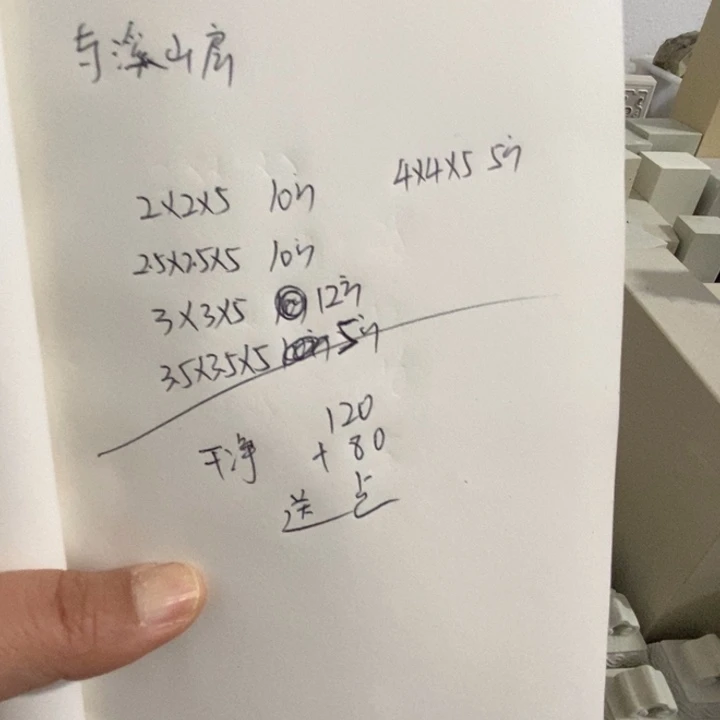 与溪山房
2×2×5 10方
4×4×5 5方
2.5×2.5×5 10方
3×3×5 12方
3.5×3.5×5 5方
120
干净 +80
送 点